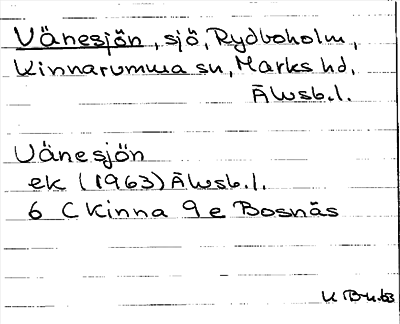 Vänesjön, sjö, Rydboholm,
Kinnarumma sn, Marks hd,
Älvsb.l.
Vänesjön
ek (1963) Älvsb.l.
6 C Kinna 9 e Bosnäs